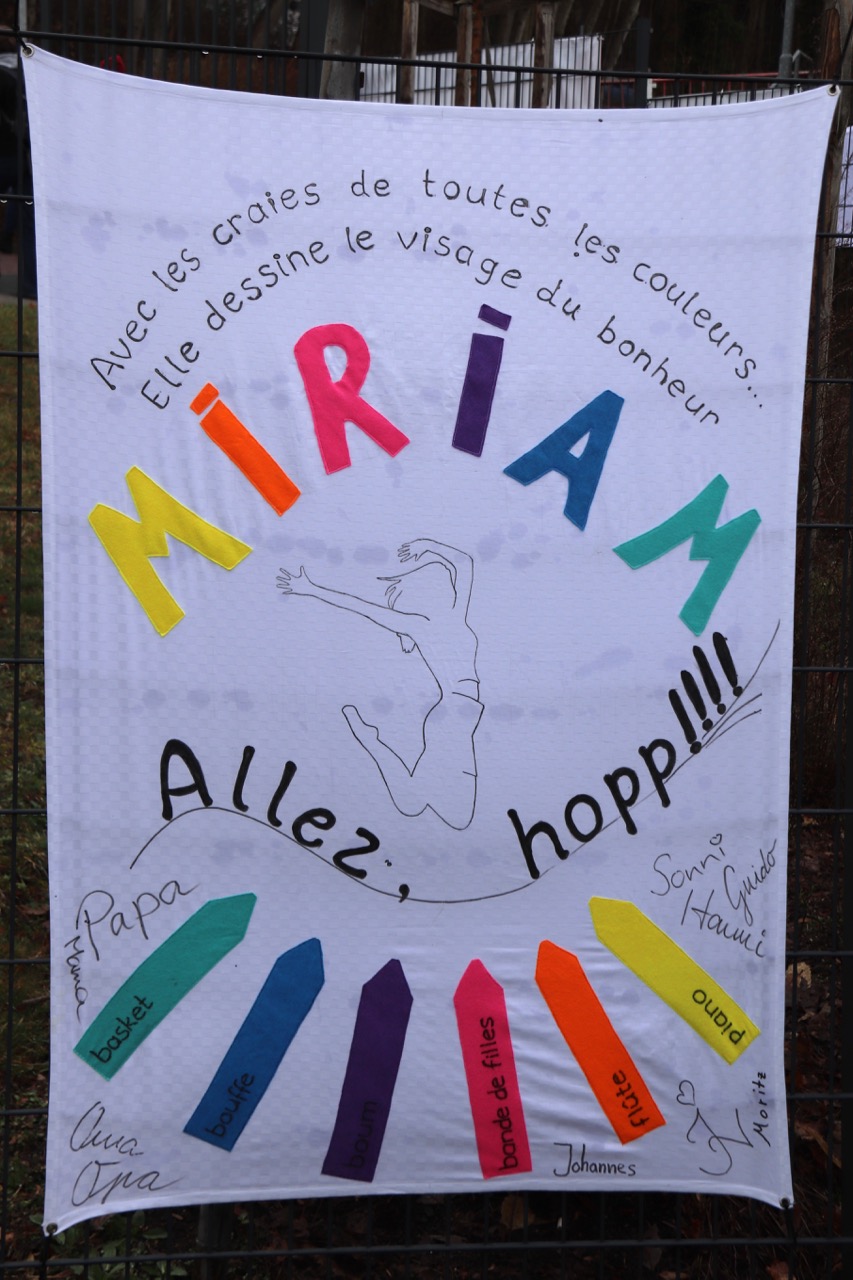 Avec les craies de toutes les couleurs...
Elle dessine le visage du bonheur
MiRiAM
Allez, hopp!!!!
Papa
Mama
Sonni
Guido
Hanni
basket
bouffe
boum
bande de filles
flûte
piano
Oma
Opa
Johannes
Moritz